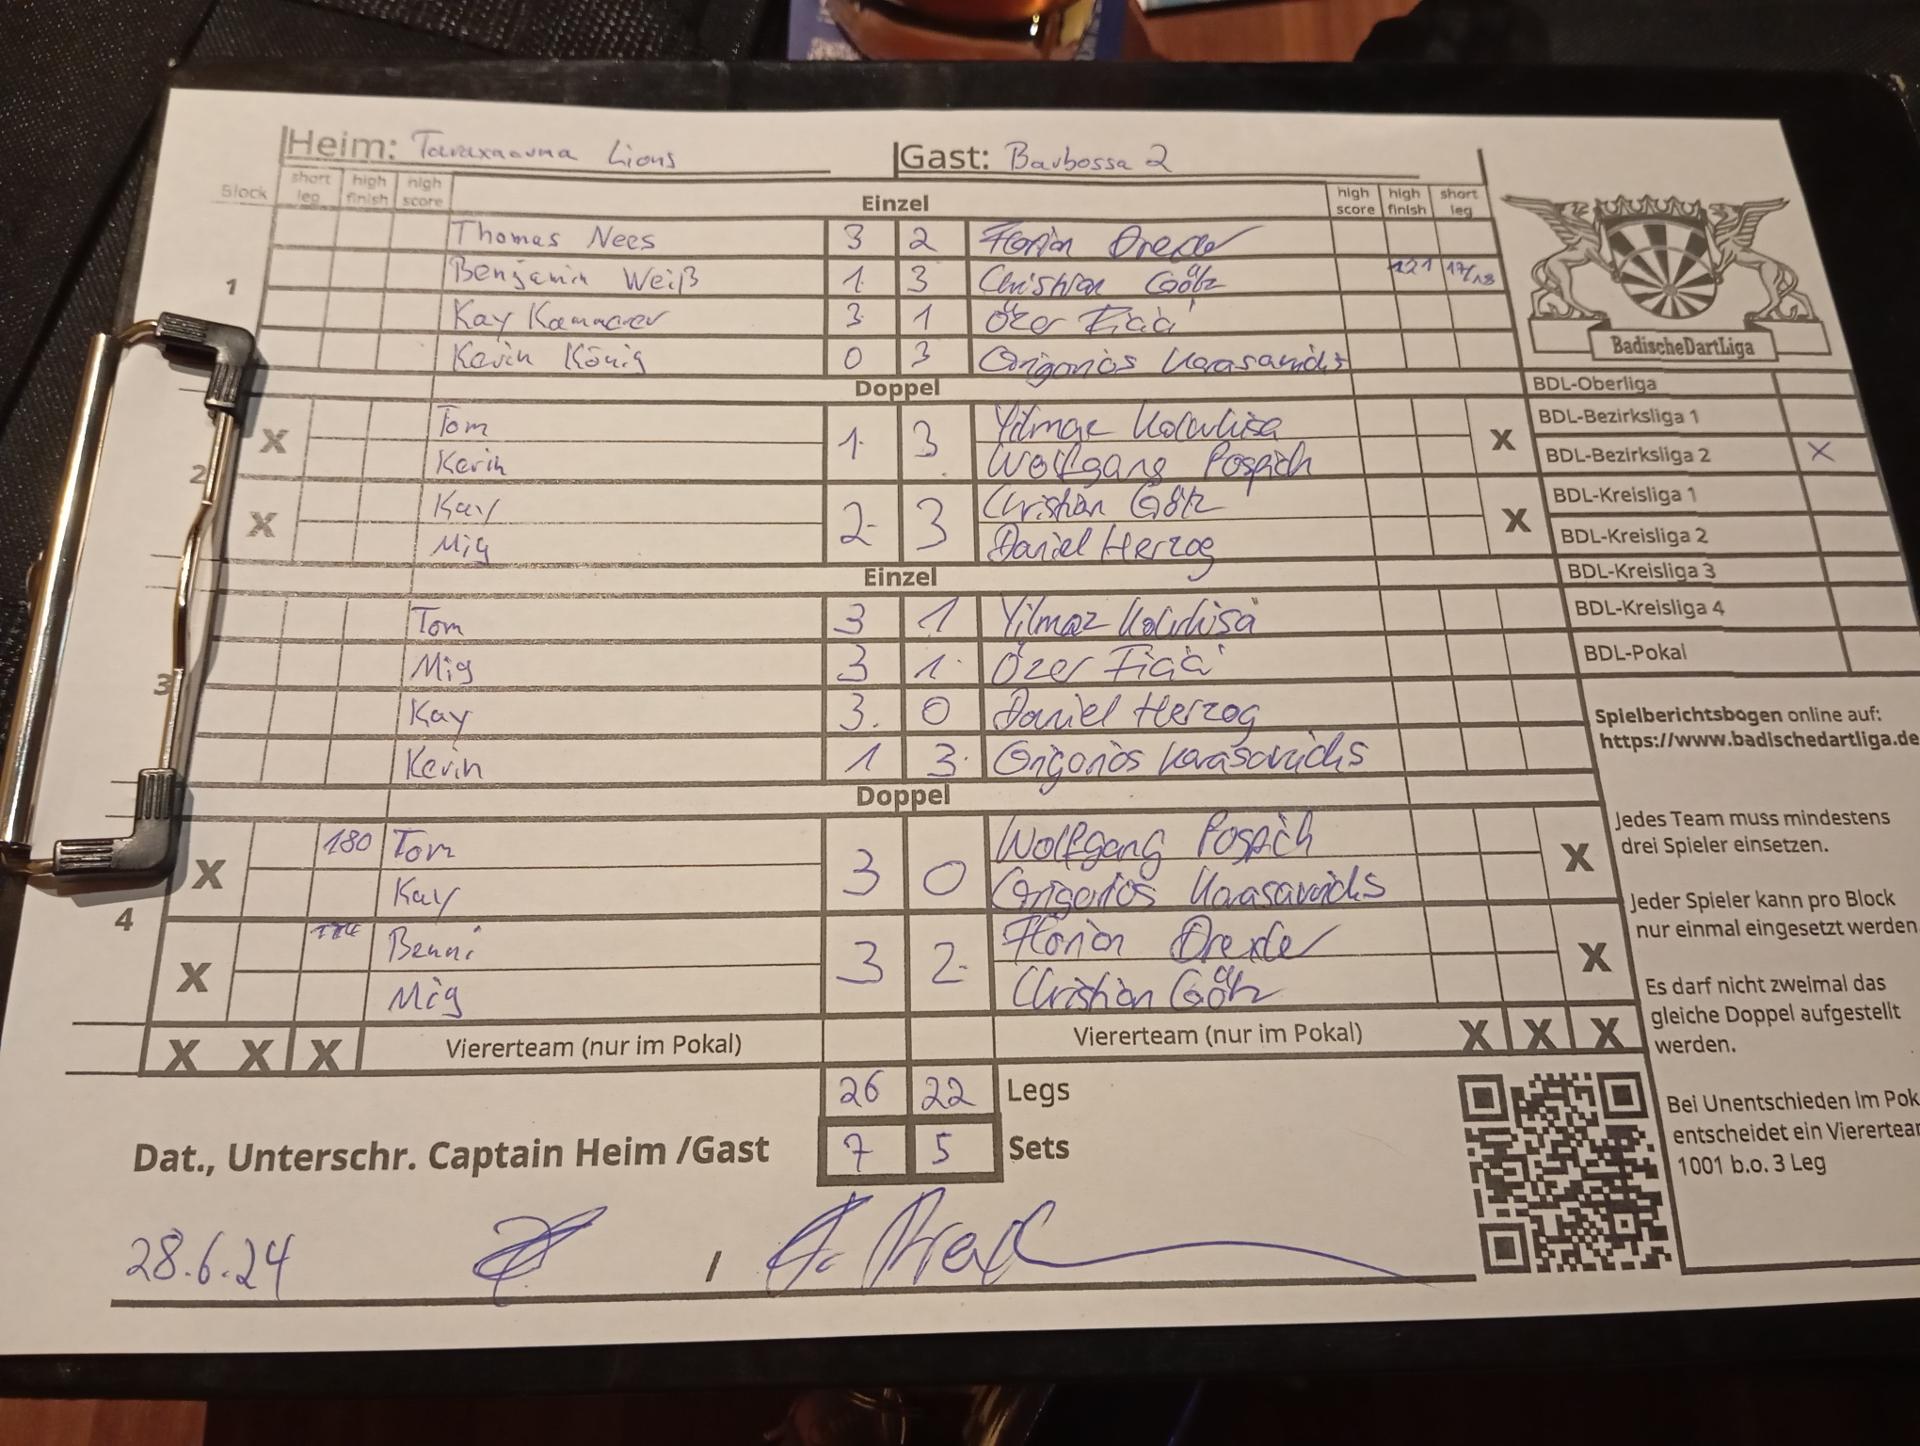 Heim: Lions Gast: Barbossa 2
Block short leg high finish high score Einzel high score high finish short leg
1
Thomas Nees 3 2 Florian Drexler
Benjamin Weiß 1 3 Christian Götz 121 17/18
Kay 3 1 Özer
Kevin König 0 3
Doppel
2
X Tom 1 3 Yilmaz X
Kevin Wolfgang Pospich
X Kay 2 3 Christian Götz X
Mig Daniel Herzog
Einzel
3
Tom 3 1 Yilmaz
Mig 3 1 Özer
Kay 3 0 Daniel Herzog
Kevin 1 3
Doppel
4
X 180 Tom 3 0 Wolfgang Pospich X
Kay
X Benni 3 2 Florian Drexler X
Mig Christian Götz
X X X Viererteam (nur im Pokal) Viererteam (nur im Pokal) X X X
26 22 Legs
Dat., Unterschr. Captain Heim /Gast 7 5 Sets
28.6.24 /
BadischeDartLiga
BDL-Oberliga
BDL-Bezirksliga 1
BDL-Bezirksliga 2 X
BDL-Kreisliga 1
BDL-Kreisliga 2
BDL-Kreisliga 3
BDL-Kreisliga 4
BDL-Pokal
Spielberichtsbogen online auf:
https://www.badischedartliga.de
Jedes Team muss mindestens
drei Spieler einsetzen.
Jeder Spieler kann pro Block
nur einmal eingesetzt werden
Es darf nicht zweimal das
gleiche Doppel aufgestellt
werden.
Bei Unentschieden im Pok
entscheidet ein Viererteam
1001 b.o. 3 Leg